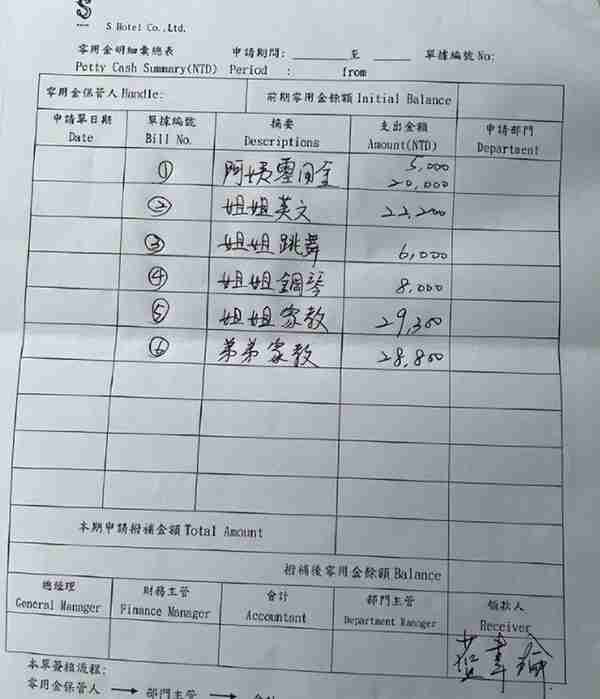 S
S Hotel Co.,Ltd.
零用金明細彙總表 申請期間: 至 單據編號 No:
Petty Cash Summary(NTD) Period : from
零用金保管人 Handle: 前期零用金餘額 Initial Balance
申請單日期 單據編號 摘要 支出金額 申請部門
Date Bill No. Descriptions Amount(NTD) Department
① 阿姨零用金 5,000
20,000
② 姐姐英文 22,200
③ 姐姐跳舞 6,000
④ 姐姐鋼琴 8,000
⑤ 姐姐家教 29,300
⑥ 弟弟家教 28,800
本期申請撥補金額 Total Amount
撥補後零用金餘額 Balance
總經理 財務主管 會計 部門主管 領款人
General Manager Finance Manager Accountant Department Manager Receiver
本單簽核流程:
零用金保管人 → 部門主管 → 會計